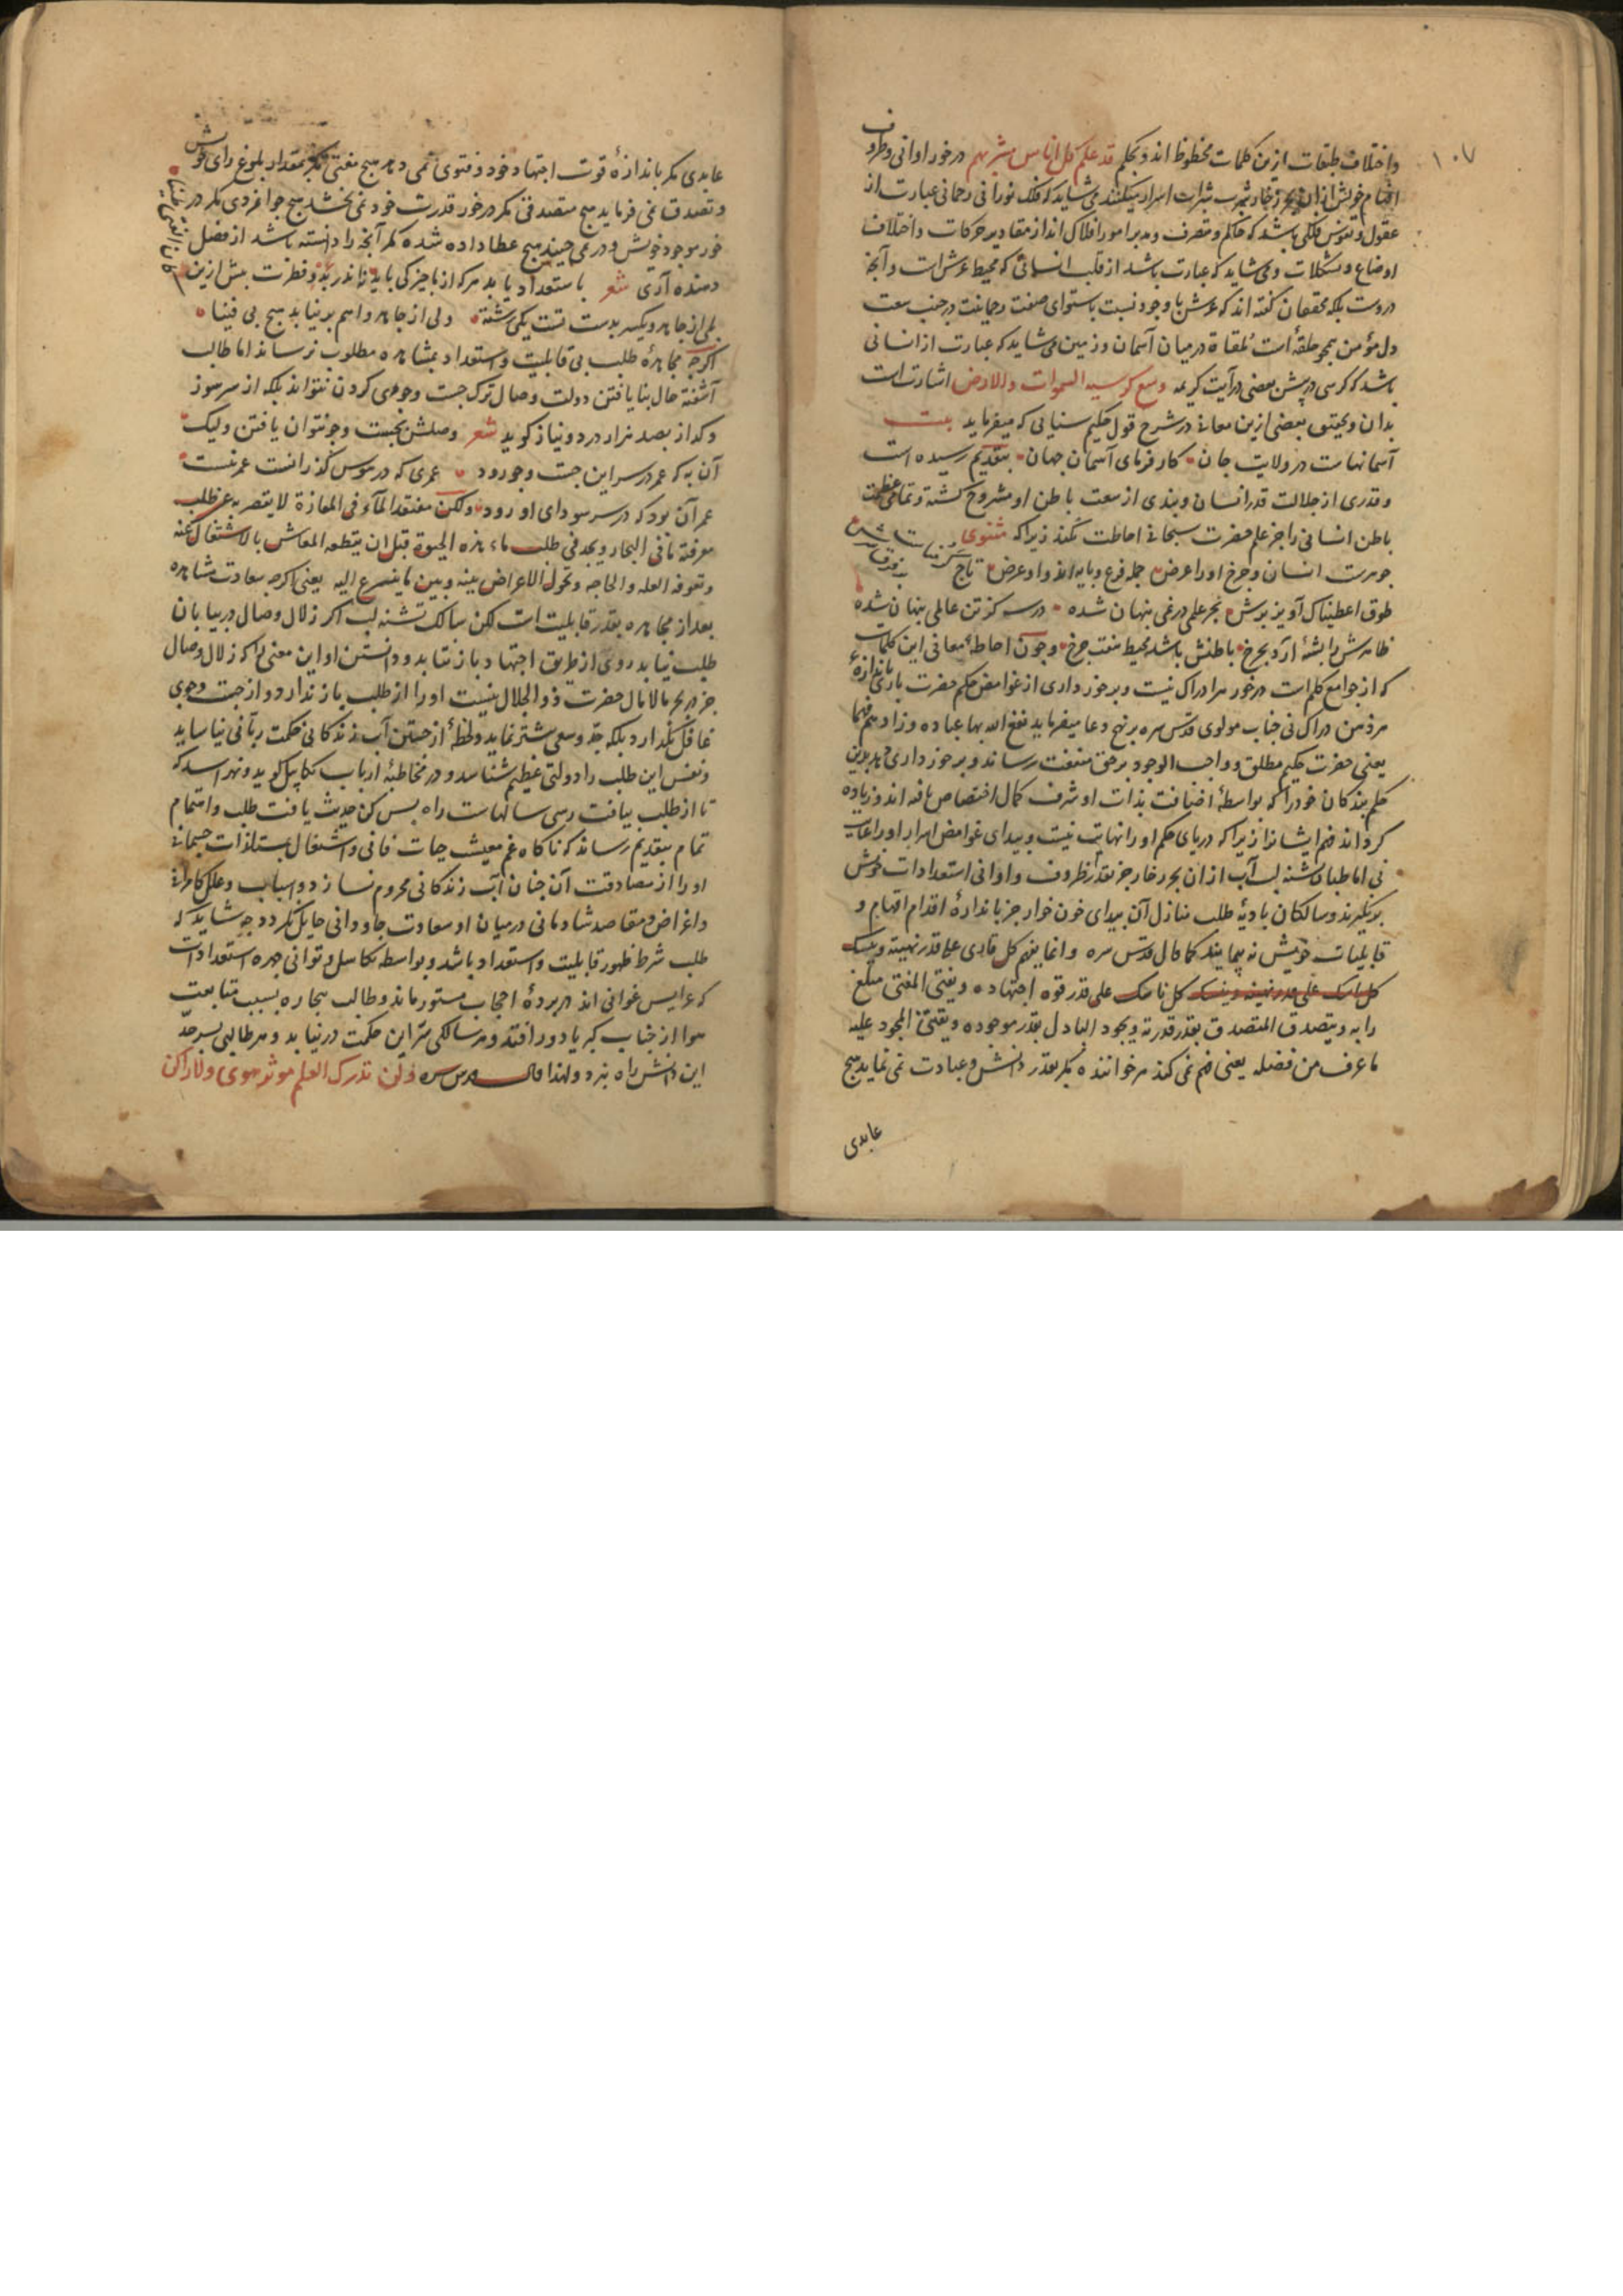 ۱۰۷
و اختلاف طبقات ازین کلمات محظوظ اند و بحکم قد علم کل اناس مشربهم درخور اوانی و ظروف
افهام خویش ازان بحر زخار تجرب شربت اسرار میکنند می شاید که فلک نورانی رحمانی عبارت از
عقول و نفوس فلکی باشد که حکم و متصرف و مدبر امور افلاک اند از مقادیر حرکات و اختلاف
اوضاع و تشکلات و می شاید که عبارت باشد از قلب انسانی که محیط عرش است و آنجه
دروست بلکه محققان کفته اند که عرش با وجود نسبت باستوای صفت رحمانیت در جنب سعت
دل مؤمن همجو حلقه است ملقاة در میان آسمان و زمین و می شاید که عبارت از انسانی
باشد که کرسی در پیش بعضی در آیت کریمه وسع کرسیه السموات والارض اشارتست
بدان و تحقیق بعضی ازین معانی در شرح قول حکیم سنایی که میفرماید بیت
آسمانهاست در ولایت جان کارفرمای آسمان جهان بتقدیم رسیده است
و قدری از جلالت قدر انسان و بندی از سعت باطن او مشروح کشته و تمامی عظمت
باطن انسانی را جز علم حضرت سبحانی احاطت نکند زیرا که مثنوی
جوهرست انسان و جرخ او را عرض جمله فرع و پایه اند و او غرض تاج
طوق اعطیناک آویز برش بحر علمی در نمی پنهان شده در سه کز تن عالمی پنهان شده
ظاهرش را پشه آرد بجرخ باطنش باشد محیط هفت جرخ و جون احاطه معانی این کلمات
که از جوامع کلم است درخور هر ادراک نیست و برخورداری از غوامض حکم حضرت باری باندازه
هر ذهن دراک نی جناب مولوی قدس سره برنهج دعا میفرماید نفع الله بها عباده و زادهم فهما
یعنی حضرت حکیم مطلق و واجب الوجود برحق منفعت رساند و برخورداری دهد بدین
حکم بندکان خود را که بواسطه اضافت بذات او شرف کمال اختصاص یافته اند و زیاده
کرداند فهم ایشانرا زیرا که دریای حکم او را نهایت نیست و بیدای غوامض اسرار او را غایت
نی اما طلبکار تشنه لب آب ازان بحر زخار جز بقدر ظروف و اوانی استعدادات خویش
برنکیرند و سالکان بادیه طلب منازل آن بیدای خون خوار جز باندازه اقدام افهام و
قابلیات خویش نه پیمایند کما قال قدس سره و انما یفهم کل قاری علی قدر نهیته و ینسک
کل ناسک علی قدر قوه اجتهاده و یفتی المفتی مبلغ
رایه و یتصدق المتصدق بقدر قدرته و یجود الباذل بقدر موجوده و یقتنی المجود علیه
ما عرف من فضله یعنی فهم نمی کند هر خواننده مکر بقدر دانش و عبادت نمی نماید هیج
عابدی
عابدی مکر باندازه قوت اجتهاد خود و فتوی نمی دهد هیج مفتی مکر بمقدار بلوغ رای خویش
و تصدق نمی فرماید هیج متصدقی مکر درخور قدرت خود نمی بخشد هیج جوانمردی مکر در
خور موجود خویش و در نمی چیند هیج عطا داده شده مکر آنجه را دانسته باشد از فضل
دهنده آری شعر باستعداد یابد هر که از ما جیزکی یابد نه اندر بدو فطرت بیش ازین
اکرجه مجاهده طلب بی قابلیت و استعداد بمشاهده مطلوب نرساند اما طالب
آشفته حال بنا یافتن دولت وصال ترک جست و جوی کردن نتواند بلکه از سر سوز
و کداز بصد هزار درد و نیاز کوید شعر وصلش بجست و جو نتوان یافتن ولیک
آن به که عمر در سر این جست و جو رود عمری که در هوس کذرانست عمر نیست
عمر آن بود که در سر سودای او رود ولکن مفتقد المآء فی المفازة لا یقصر به عن طلب
معرفته ما فی البحار و یجد فی طلب ماء هذه الحیوة قبل ان یقطعه المعاش بالاشتغال عنه
و تعوقه العله و الحاجه و تحول الاعراض بینه و بین ما یتسرع الیه یعنی اکرجه سعادت مشاهده
بعد از مجاهده بقدر قابلیت است لکن سالک تشنه لب اکر زلال وصال در بیابان
طلب نیابد روی از طریق اجتهاد باز نتابد و دانستن او این معنی را که زلال وصال
جز در بحر مالامال حضرت ذو الجلال نیست او را از طلب باز ندارد و از جست وجوی
غافل نکذارد بلکه جد و سعی بیشتر نماید و لحظه از جستن آب زندکانی حکمت ربانی نیاساید
و نفس این طلب را دولتی عظیم شناسد و در مخاطبه ارباب تکاسل کوید و نهراسد که
تا از طلب بیافت رسی سالهاست راه بس کن حدیث یافت طلب و اهتمام
تمام بتقدیم رساند که ناکاه غم معیشت حیات فانی و اشتغال بمستلذات جسمانی
او را از مصادقت آن جنان آب زندکانی محروم نسازد و اسباب و علل کامرانی
و اغراض و مقاصد شادمانی درمیان او و سعادت جاودانی حایل نکردد جه شاید که
طلب شرط ظهور قابلیت و استعداد باشد و بواسطه تکاسل و توانی جهره استعدادات
که عرایس غوانی اند در پرده احجاب مستور ماند و طالب بیجاره بسبب متابعت
هوا از جناب کبریا دور افتد و هر سالکی سر این حکمت درنیابد و هر طالبی بسرحد
این دانش راه نبرد و لهذا قال قدس سره و لن تدرک العلم موثر هوی ولا راکن